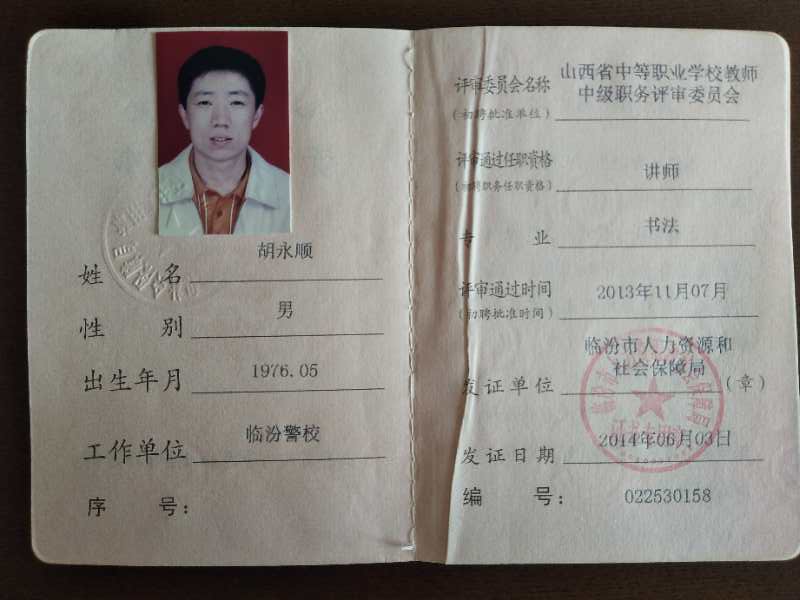 姓 名 胡永顺
性 别 男
出生年月 1976.05
工作单位 临汾警校
序 号：
评审委员会名称 山西省中等职业学校教师
（初聘批准单位） 中级职务评审委员会
评审通过任职资格 讲师
（初聘职务任职资格）
专 业 书法
评审通过时间 2013年11月07月
（初聘批准时间）
发证单位 临汾市人力资源和
社会保障局 （章）
发证日期 2014年06月03日
编 号： 022530158